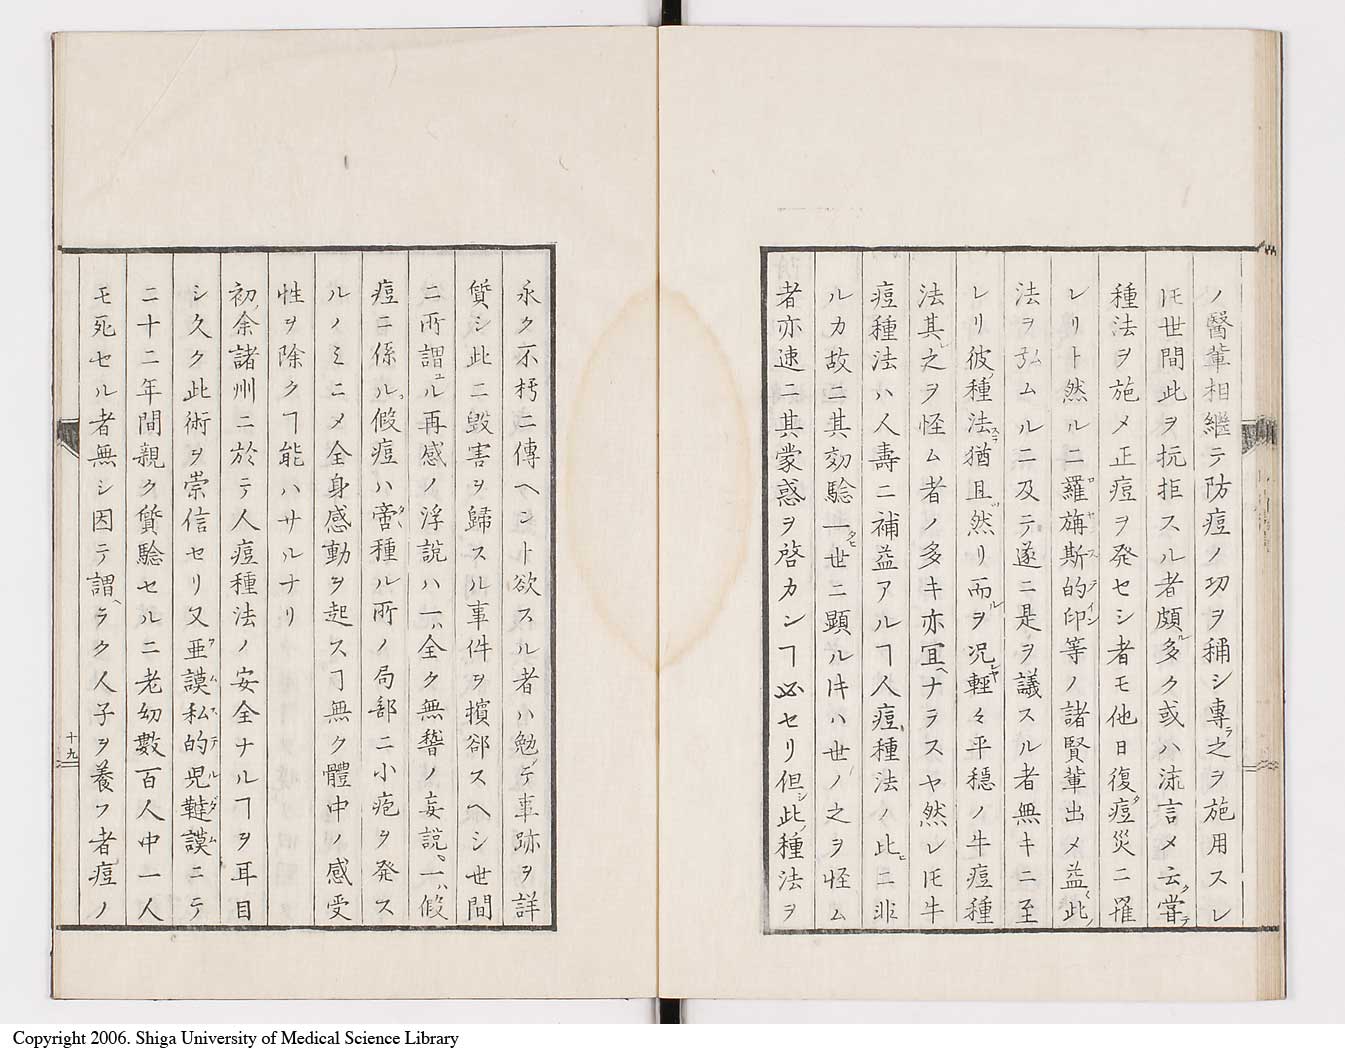 ノ醫輩相繼テ防痘ノ功ヲ稱シ專ラ之ヲ施用スレ
𪜈世間此ヲ抗拒スル者頗ル多ク或ハ流言メ云ク甞テ
種法ヲ施メ正痘ヲ発セシ者モ他日復タ痘災ニ罹
レリト然ルニ羅旃斯的印等ノ諸賢輩出メ益〻此ノ
法ヲ弘ムルニ及テ遂ニ是ヲ議スル者無キニ至
レリ彼ノ種法スラ猶且ツ然リ而ルヲ况ヤ輕々平穏ノ牛痘種
法其レ之ヲ怪ム者ノ多キ亦宜ヘナラスヤ然レ𪜈牛
痘種法ハ人壽ニ補益アルヿ人痘種法ノ此ヒニ非
ルカ故ニ其効驗一タヒ世ニ顕ル𪜈ハ世ノ之ヲ怪ム
者亦速ニ其蒙惑ヲ啓カンヿ必セリ但シ此ノ種法ヲ
永ク不朽ニ傳ヘント欲スル者ハ勉テ事跡ヲ詳
質シ此ニ毀害ヲ歸スル事件ヲ擯郤スヘシ世間
ニ所謂ユル再感ノ浮說ハ一ハ全ク無稽ノ妄說、一ハ假
痘ニ係ル、假痘ハ啻タ種ル所ノ局部ニ小疱ヲ発ス
ルノミニメ全身感動ヲ起スヿ無ク體中ノ感受
性ヲ除クヿ能ハサルナリ
初メ余諸州ニ於テ人痘種法ノ安全ナルヿヲ耳目
シ久ク此術ヲ崇信セリ又亜謨私的児韃謨ニテ
アムステルダム
二十二年間親ク質驗セルニ老幼數百人中一人
モ死セル者無シ因テ謂ヘラク人子ヲ養フ者痘ノ
十九
Copyright 2006. Shiga University of Medical Science Library